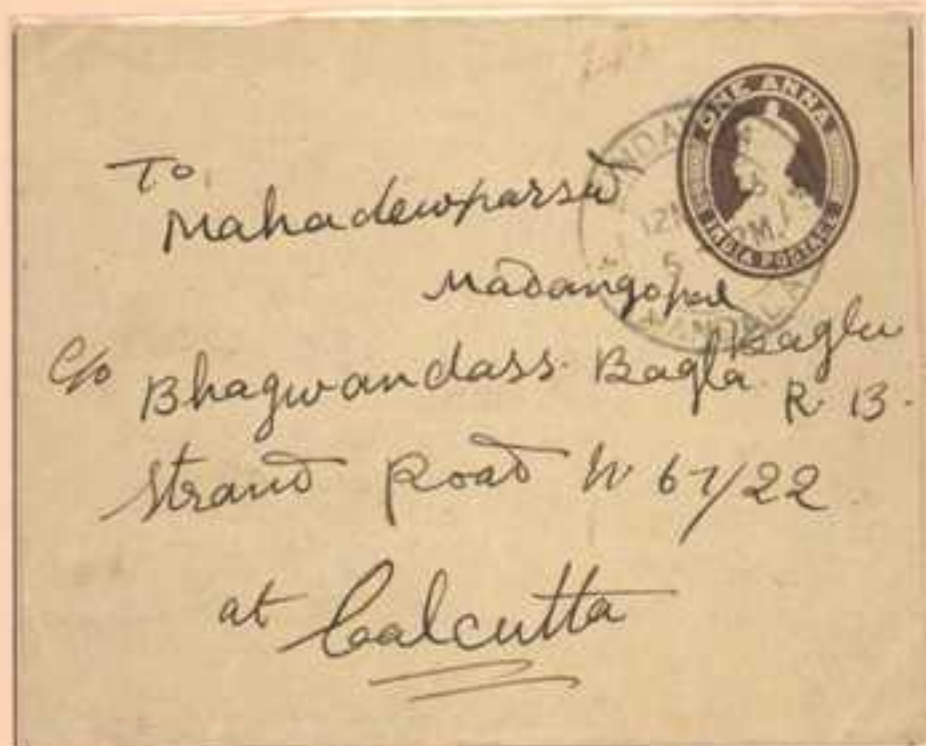 ONE ANNA
INDIA POSTAGE
To
Mahadewparsad
Madangopal
Bagla
C/o Bhagwandass. Bagla R. B.
Strand Road N 67/22
at Calcutta